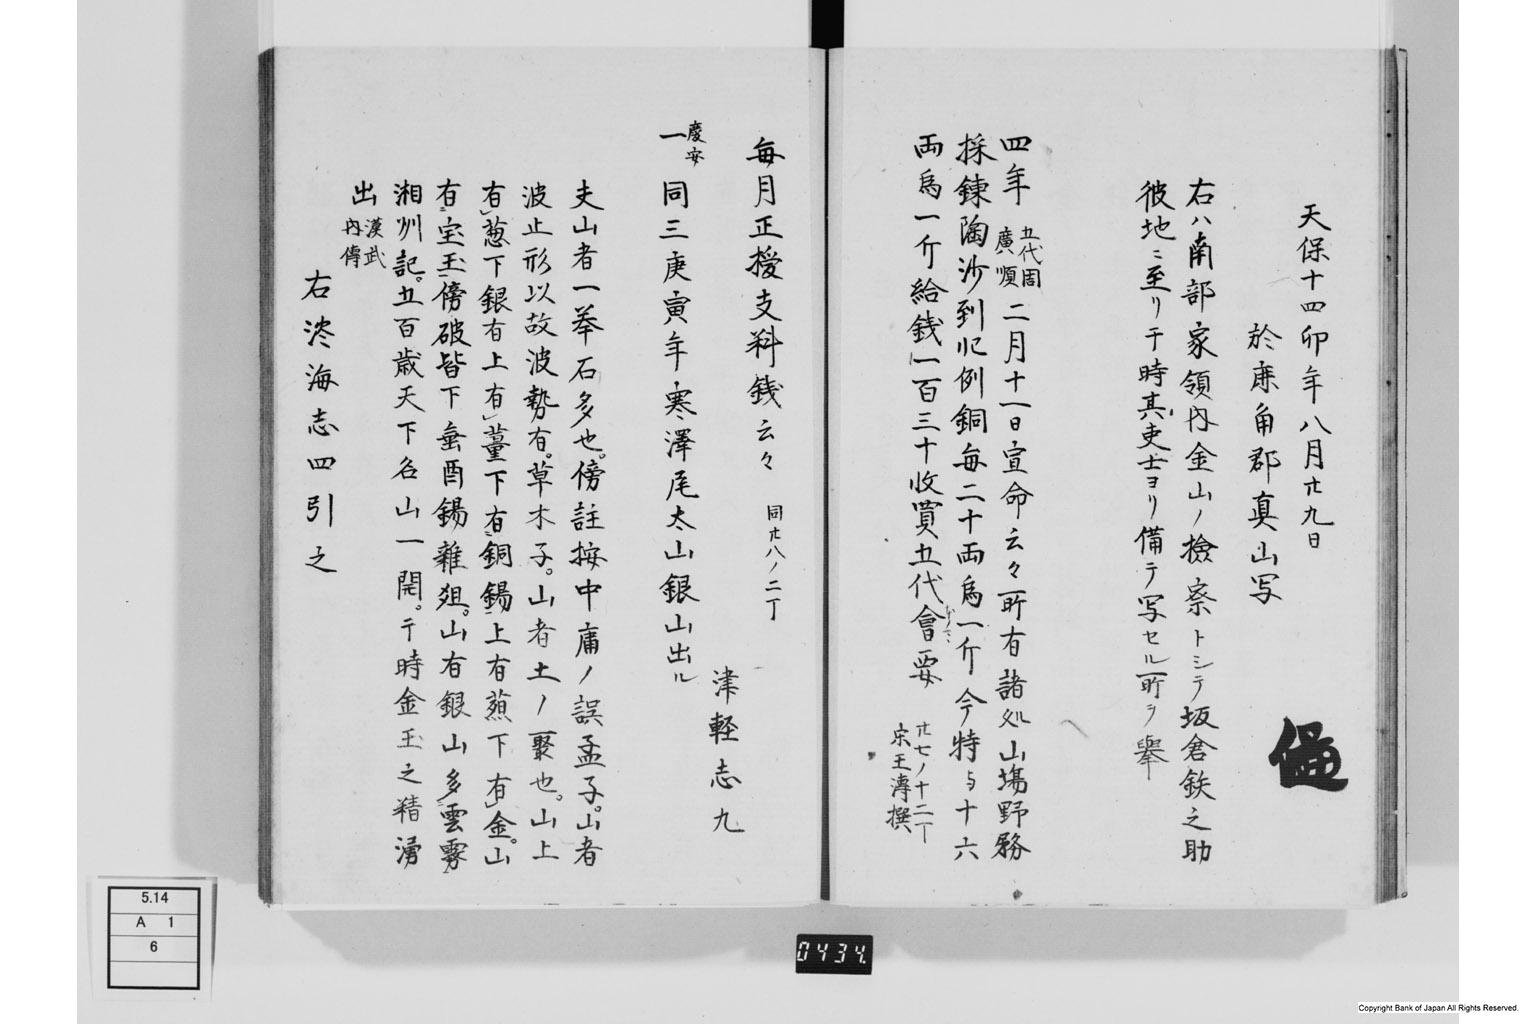 天保十四卯年八月廿九日
於鹿角郡真山写
右ハ南部家領内金山ノ検察トシテ坂倉鉄之助
彼地ニ至リ于時其吏士ヨリ備テ写セル所ヲ挙
四年 五代周廣順 二月十一日宣命云々所有諸処山塲野務
採錬陶沙到圯例銅毎二十両爲一斤今特与十六
両爲一斤給銭一百三十收買五代會要 廿七ノ十二丁 宋王溥撰
毎月正授支料銭云々 同廿八ノ二丁
津軽志九
慶安
一 同三庚寅年寒澤尾太山銀山出ル
夫山者一拳石多也。傍註按中庸ノ誤孟子。山者
波止形以故波勢有。草木子。山者土ノ聚也。山上
有葱下銀有上有薑下有銅錫上有蘓下有金。山
有宝玉傍破皆下垂酉錫雜爼。山有銀山多雲霧
湘州記。五百歳天下名山一開。于時金玉之精湧
出 漢武内傳
右滄海志四引之
5.14
A 1
6
0434.
Copyright Bank of Japan All Rights Reserved.